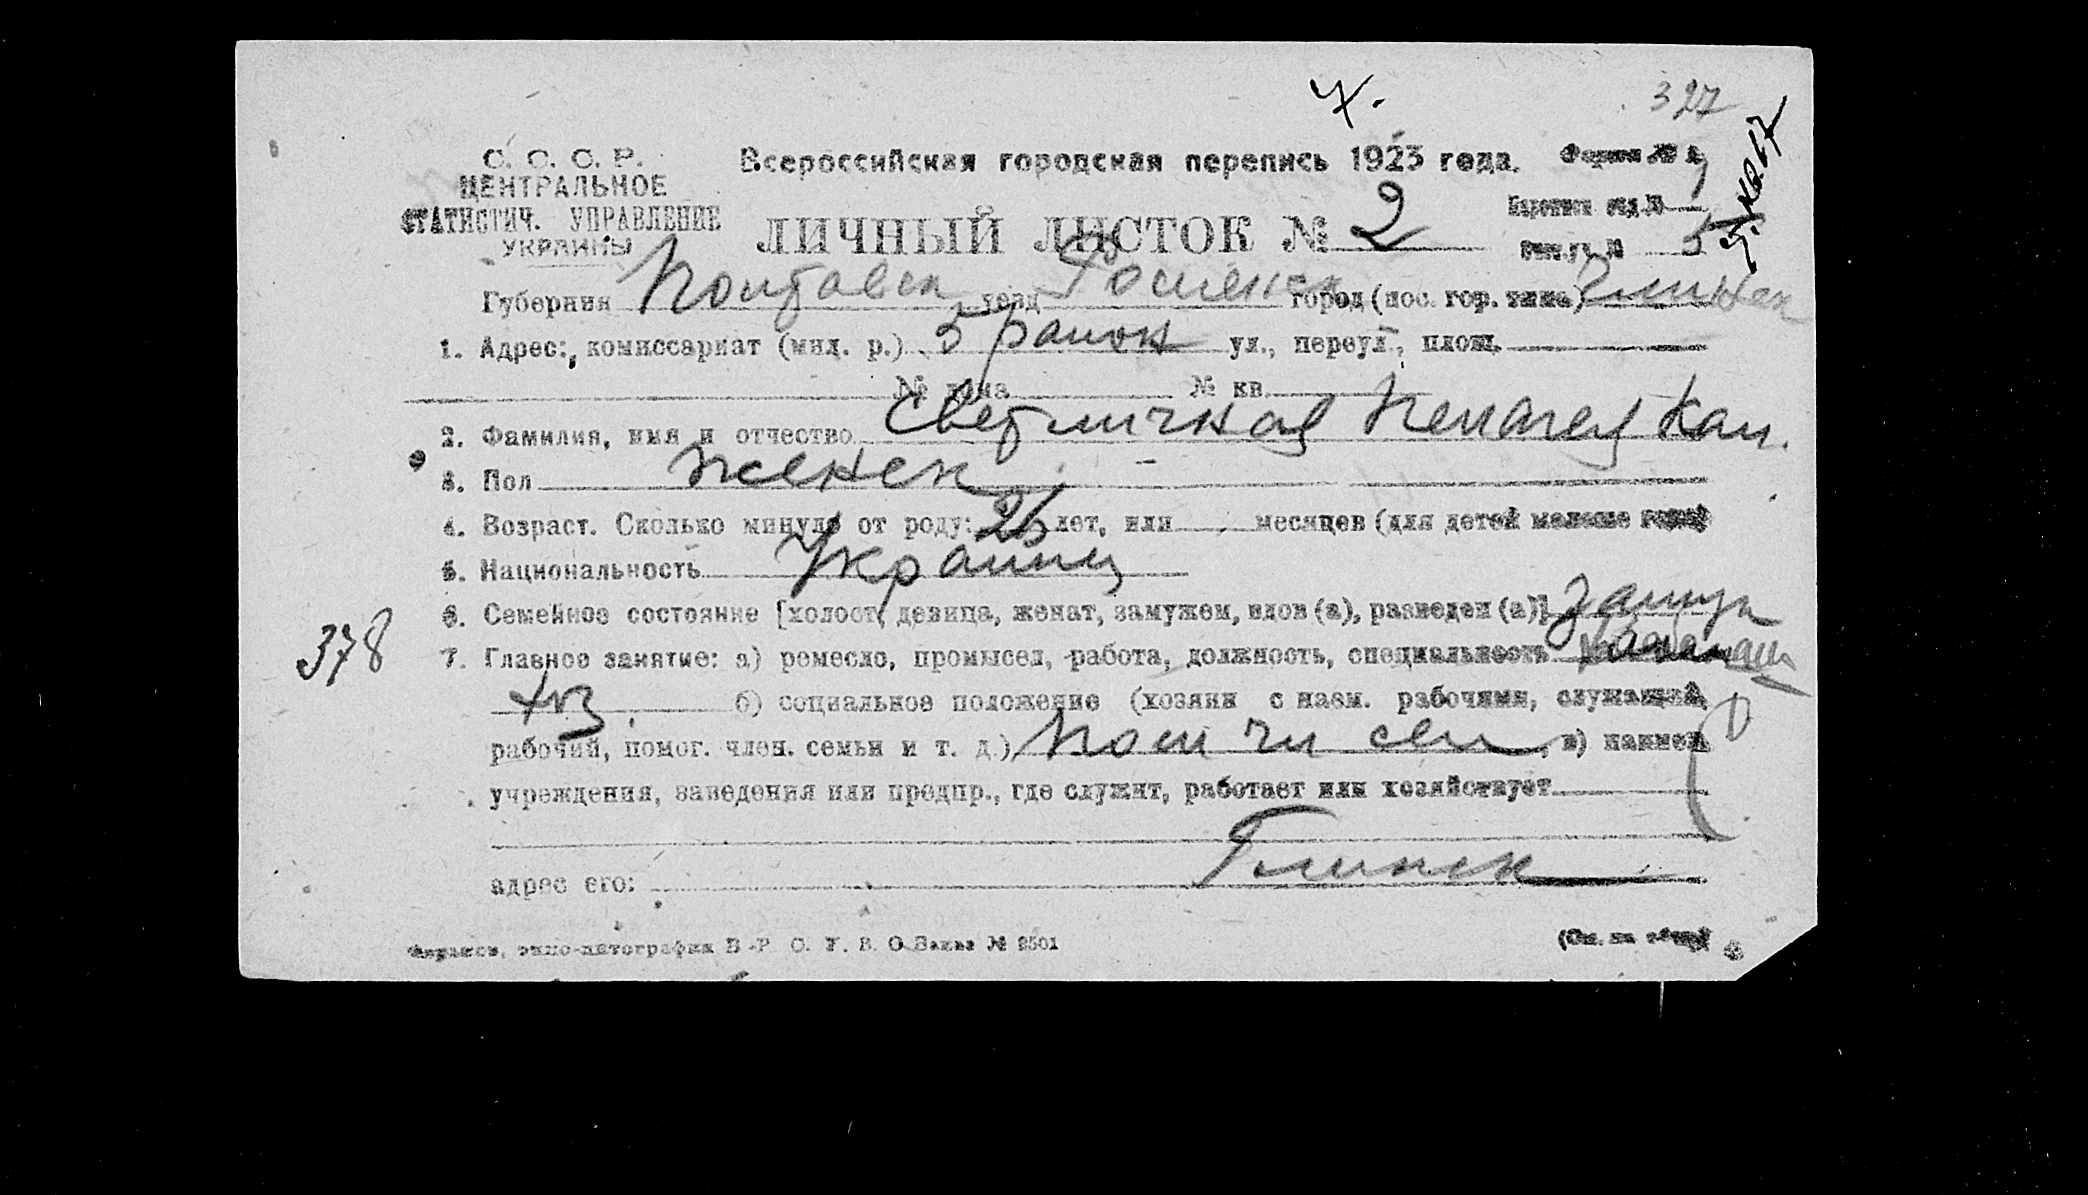 7.
327
С. С. С. Р.
ЦЕНТРАЛЬНОЕ
СТАТИСТИЧ. УПРАВЛЕНИЕ
УКРАИНЫ
Всероссийская городская перепись 1923 года.
Форма №
ЛИЧНЫЙ ЛИСТОК № 2
5
Губерния Полтавск уезд Роменск город (пос. гор. типа) Глинск
1. Адрес: комиссариат (мил. р.) 5 район ул., переул., площ.
№ дома № кв.
2. Фамилия, имя и отчество Светличная Пелагея Кал.
3. Пол женск
4. Возраст. Сколько минуло от роду: 26 лет, или месяцев (для детей моложе года)
5. Национальность Украинц
6. Семейное состояние [холост, девица, женат, замужем, вдов (а), разведен (а)] Замуж
378
7. Главное занятие: а) ремесло, промысел, работа, должность, специальность
б) социальное положение (хозяин с наем. рабочими, служащий,
рабочий, помог. член. семьи и т. д.) Пом чл сем, в) наимен.
учреждения, заведения или предпр., где служит, работает или хозяйствует
адрес его: Глинск
Харьков, типо-литография В.-Р. С. У. В. О. Заказ № 2501
(См. на обор.)